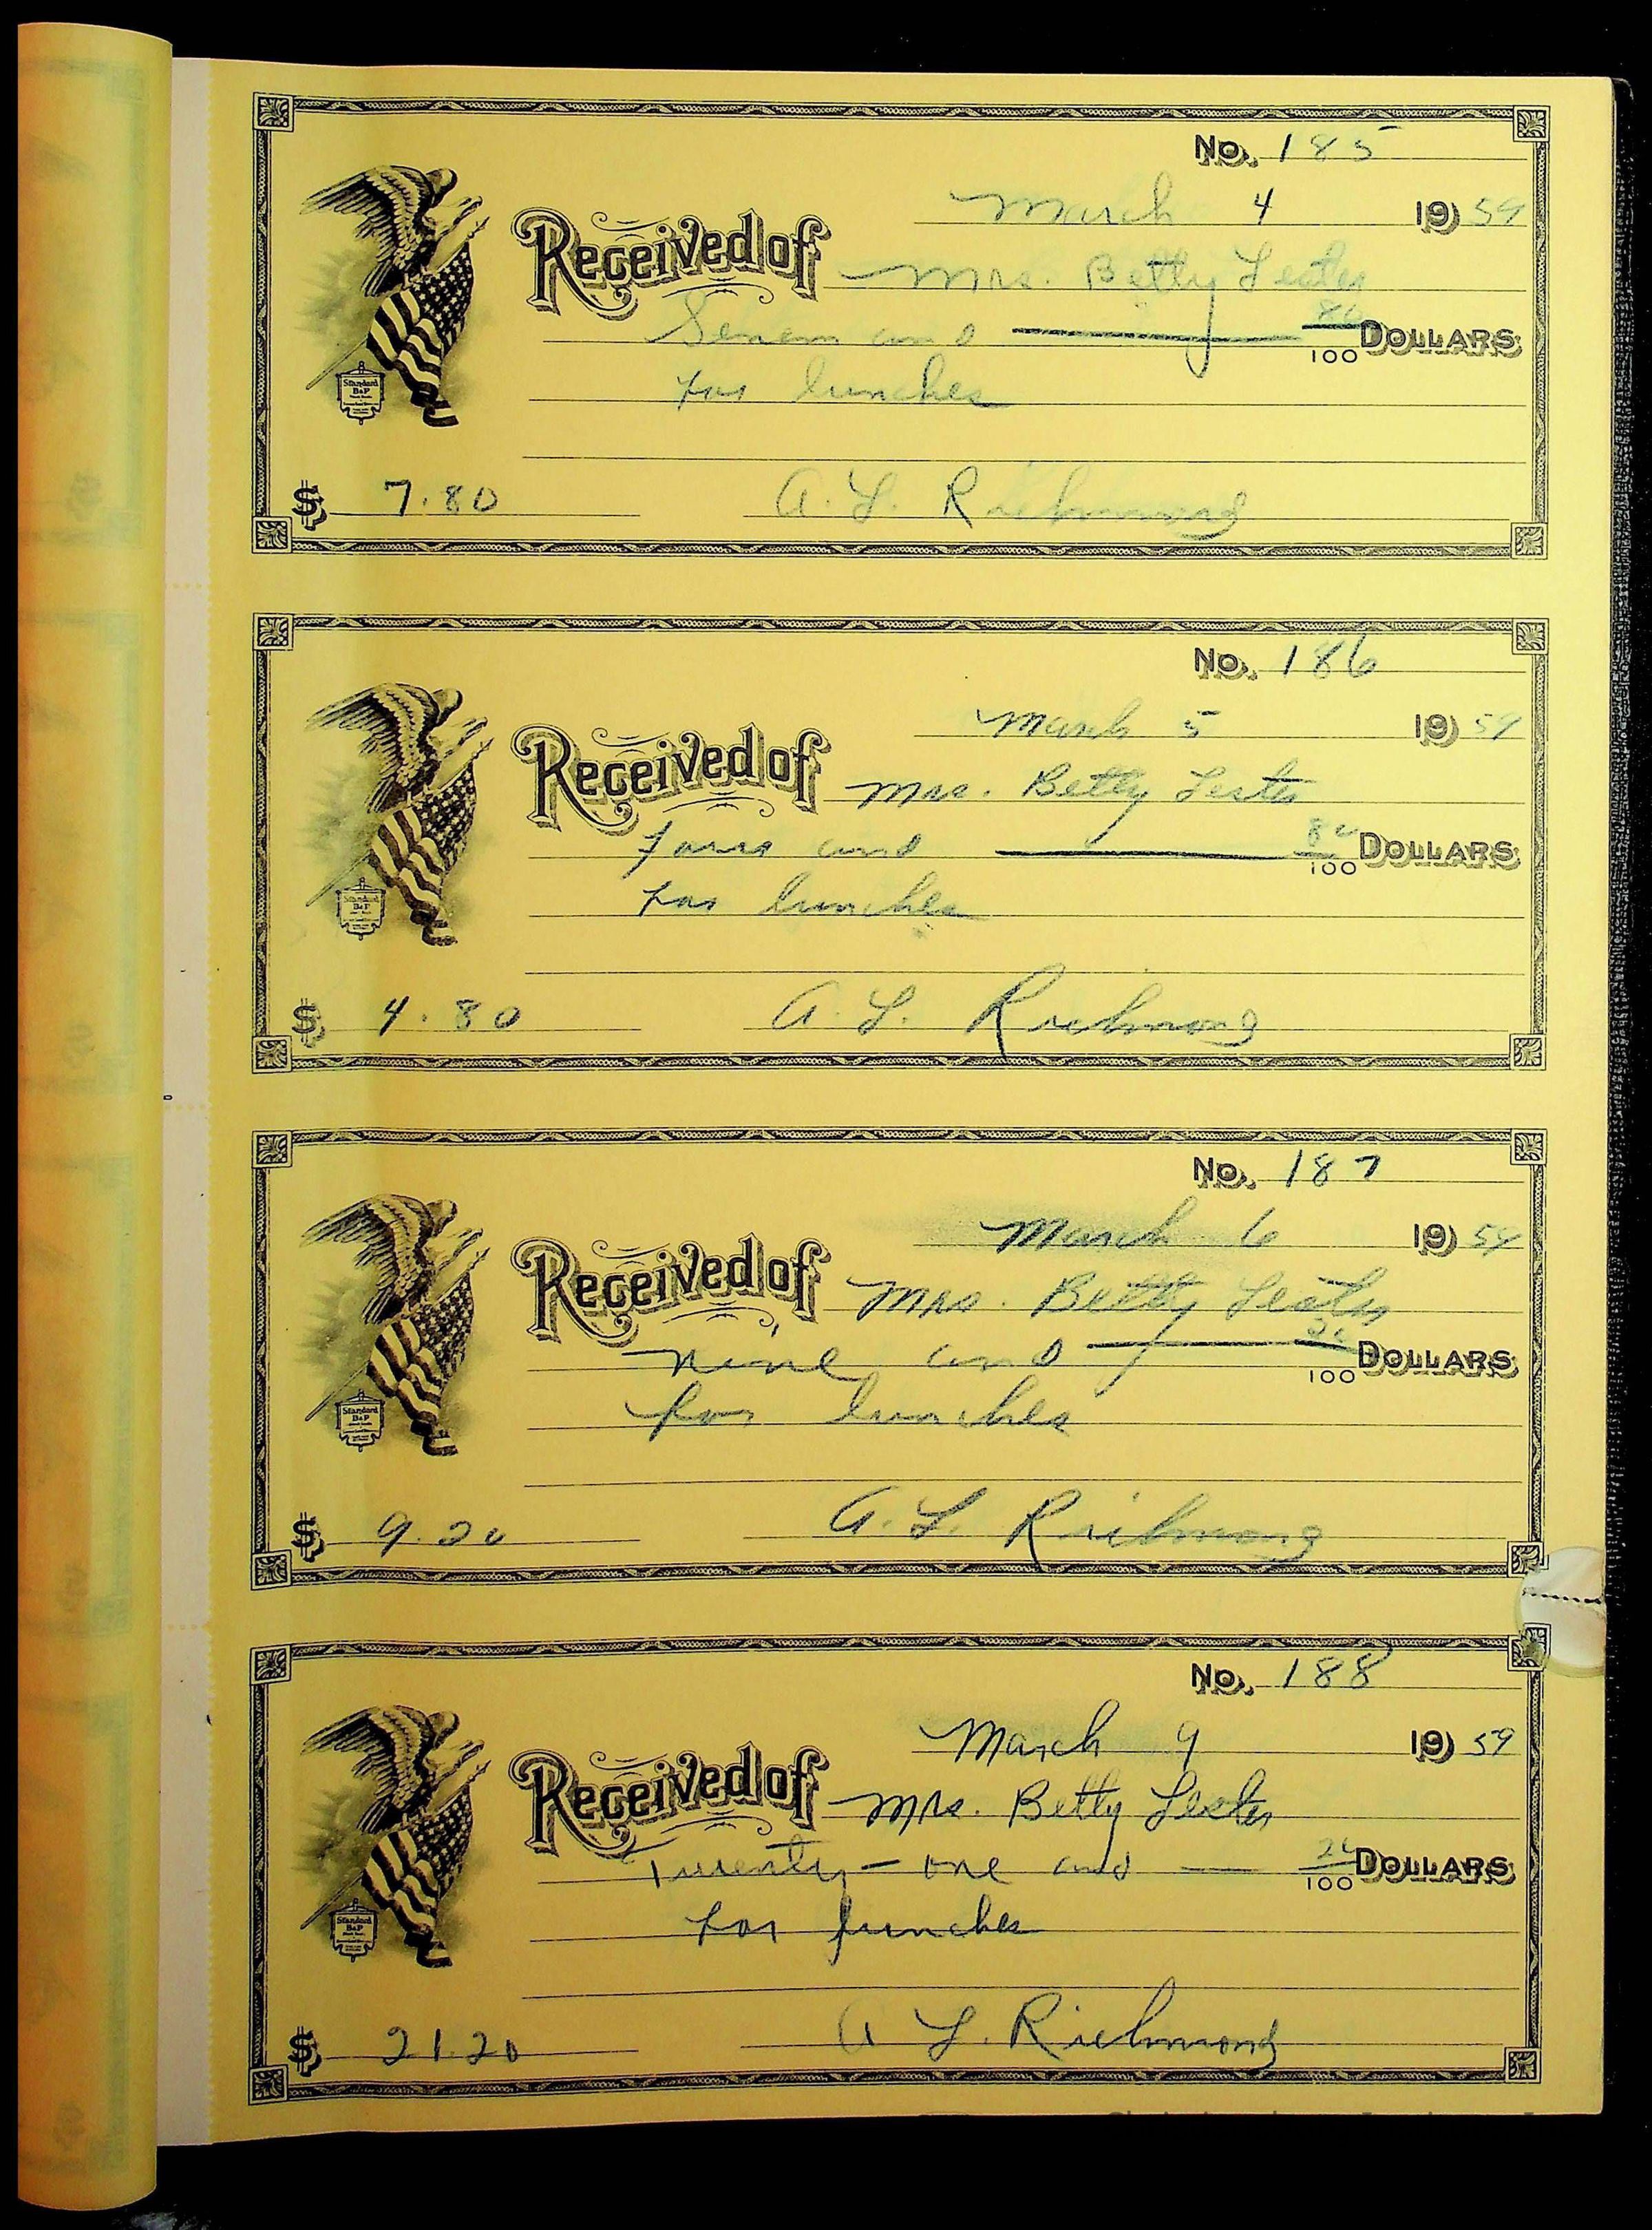 No. 185
March 4 1959
Received of Mrs. Betty Lester
Seven and 80/100 DOLLARS
for lunches
$ 7.80 A. L. Richmond
Standard B&P
No. 186
March 5 1959
Received of Mrs. Betty Lester
Four and 80/100 DOLLARS
for lunches
$ 4.80 A. L. Richmond
Standard B&P
No. 187
March 6 1959
Received of Mrs. Betty Lester
nine and 20/100 DOLLARS
for lunches
$ 9.20 A. L. Richmond
Standard B&P
No. 188
March 9 1959
Received of Mrs. Betty Lester
Twenty-one and 20/100 DOLLARS
for lunches
$ 21.20 A L. Richmond
Standard B&P